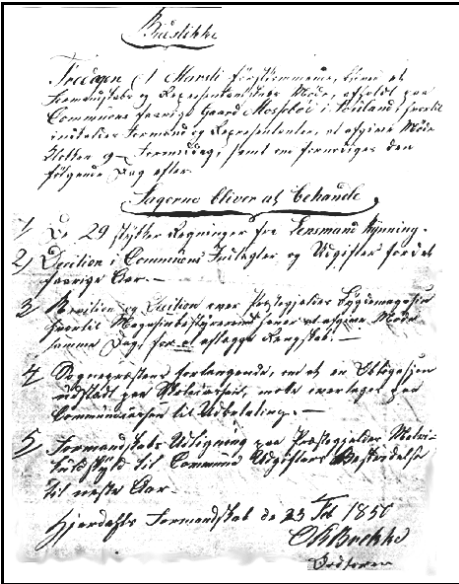 Budstikke
Tirsdagen Marti førstkommende, bliver et
Formandskabs og Repræsentantskabs Møde, afholdt paa
Communens Gaard Mosebøe i Sauland, hvortil
indkaldes Formænd og Repræsentanter, at afgive Møde
Klokken 9 Formiddag, samt en fornødiges den
følgende Dag efter.
Sagerne bliver at behandle
1) De 29 stykker Regninger fra Lensmand Rypning.
2) Decition i Communens Indtægter og Udgifter for det
forrige Aar. —
3 Revition og Decition over Præstegjeldets Magasin
hvortil Magasinbestyreren haver at afgive Møde
samme Dag, for at aflægge Regnskab. —
4 Sognepræstens forlangende, om at en Obligasjon
udstedt paa Skolecassen, maatte overtages paa
Communecassen til Udbetaling. —
5 Formandskabs Udligning paa Præstegjeldets Matri-
kulskyld til Communs Udgifters Bestridelse
til næste Aar.
Hjerdahls Formandskab de 23 Feb 1850
Ordføreren